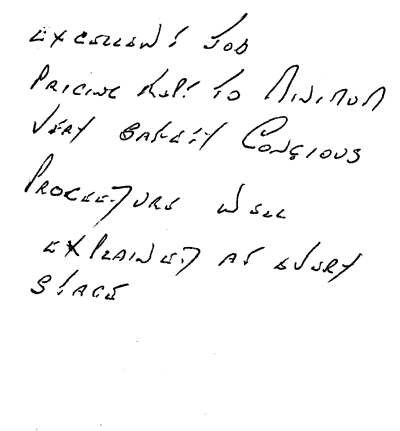 EXCELLENT JOB
PRICING KEPT TO MINIMUM
VERY SAFETY CONCIOUS
PROCEEDURE WELL
EXPLAINED AT EVERY
STAGE